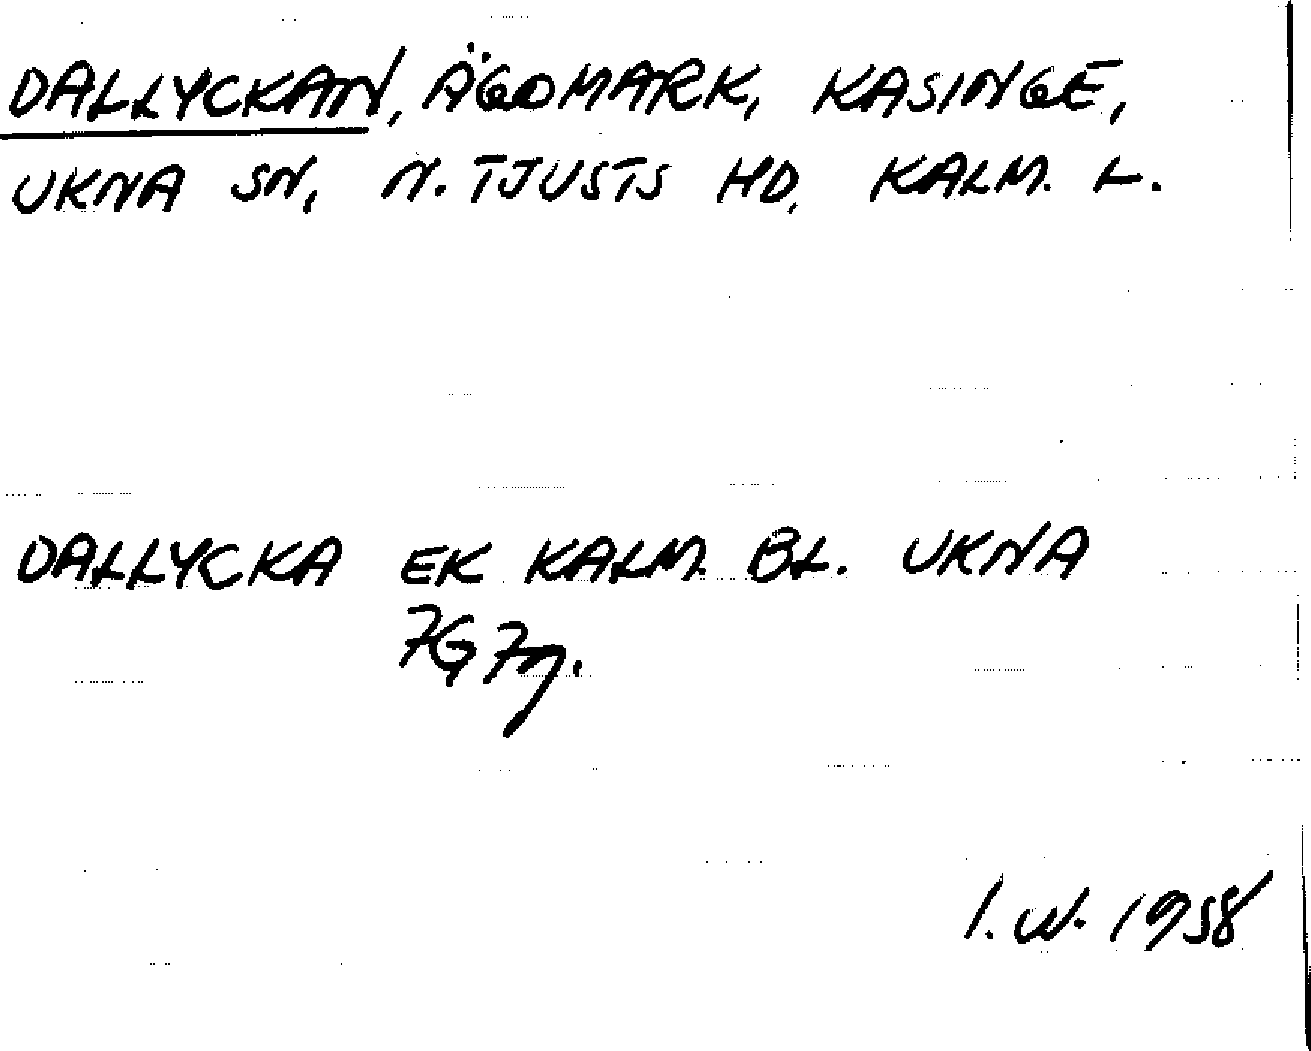 DALLYCKAN, ÄGOMARK, KASINGE,
UKNA SN, N. TJUSTS HD, KALM. L.
DALLYCKA EK KALM. BL. UKNA
7G7g.
I. W. 1958